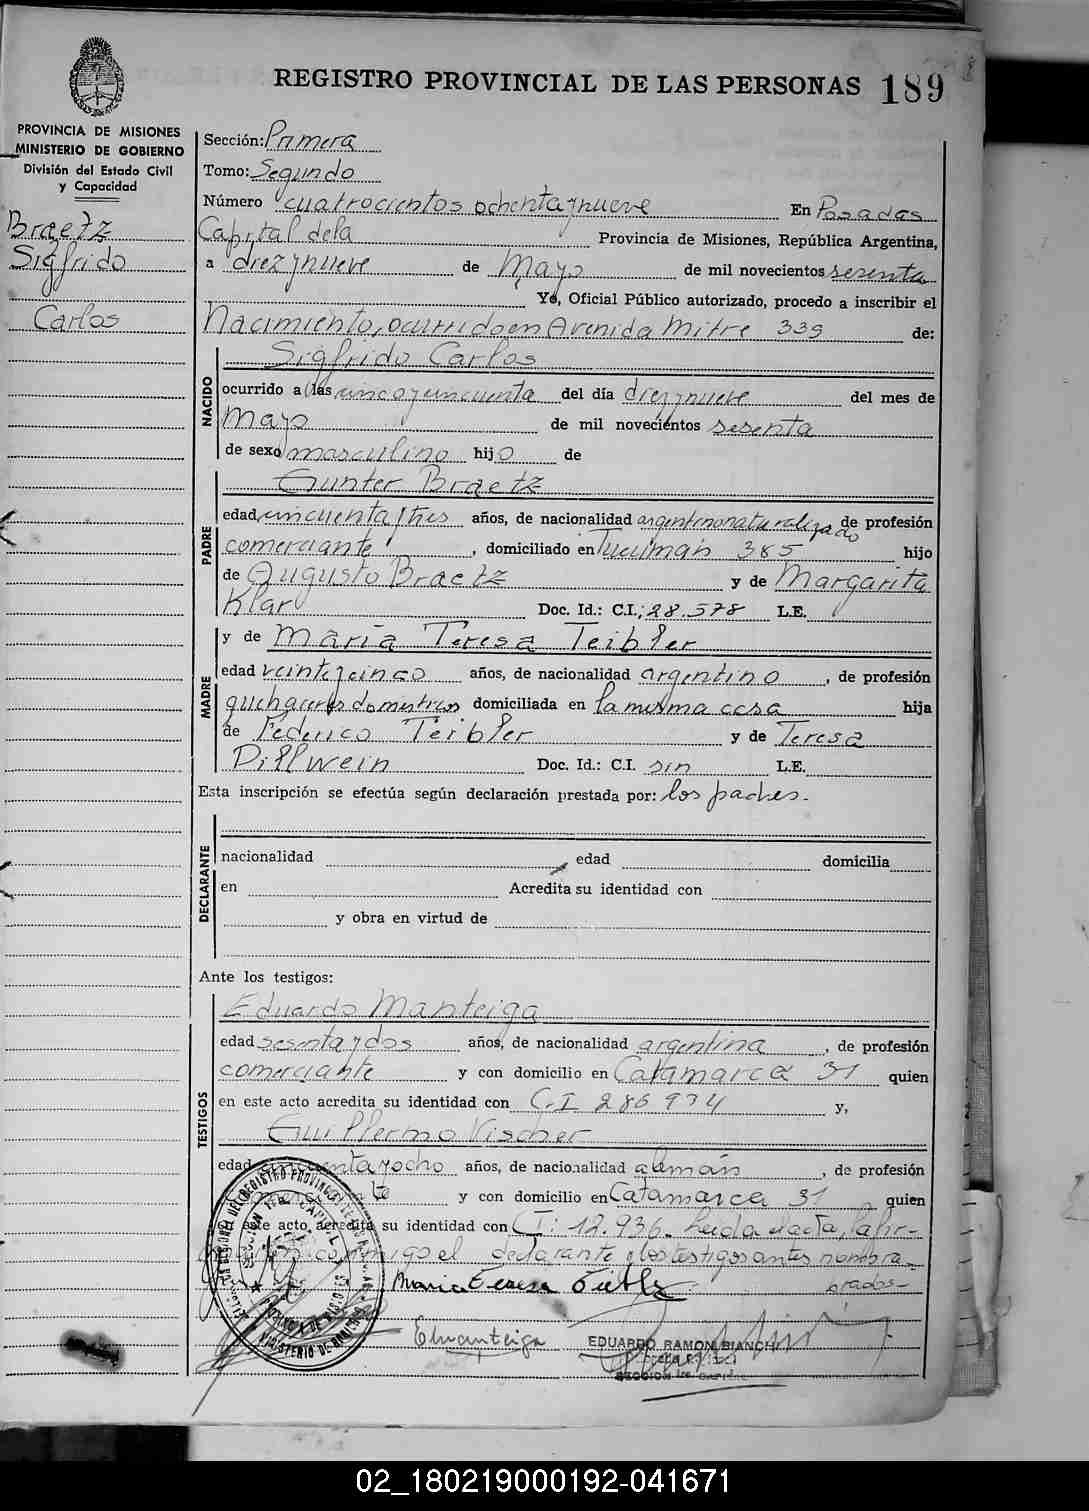 REGISTRO PROVINCIAL DE LAS PERSONAS 189
PROVINCIA DE MISIONES
MINISTERIO DE GOBIERNO
División del Estado Civil
y Capacidad
Braetz
Sigfrido
Carlos
Sección: Primera
Tomo: Segundo
Número cuatrocientos ochenta y nueve En Posadas
Capital de la Provincia de Misiones, República Argentina,
a diez y nueve de Mayo de mil novecientos sesenta
Yo, Oficial Público autorizado, procedo a inscribir el
Nacimiento, ocurrido en Avenida Mitre 339 de:
Sigfrido Carlos
NACIDO
ocurrido a las cinco y cincuenta del día diez y nueve del mes de
Mayo de mil novecientos sesenta
de sexo masculino hijo de
Gunter Braetz
PADRE
edad cincuenta y tres años, de nacionalidad argentino naturalizado de profesión
comerciante, domiciliado en Tucuman 385 hijo
de Augusto Braetz y de Margarita
Klar Doc. Id.: C.I.; 28.578 L.E.
y de Maria Teresa Teibler
MADRE
edad veinte y cinco años, de nacionalidad argentino, de profesión
quehaceres domestricos domiciliada en la misma casa hija
de Federico Teibler y de Teresa
Dillwein Doc. Id.: C.I. sin L.E.
Esta inscripción se efectúa según declaración prestada por: los padres.
DECLARANTE
nacionalidad edad domicilia
en Acredita su identidad con
y obra en virtud de
Ante los testigos:
TESTIGOS
Eduardo Manteiga
edad sesenta y dos años, de nacionalidad argentina, de profesión
comerciante y con domicilio en Catamarca 31 quien
en este acto acredita su identidad con C.I 286934 y,
Guillermo Vischer
edad cincuenta y ocho años, de nacionalidad alemán, de profesión
y con domicilio en Catamarca 31 quien
este acto acredita su identidad con C I: 12.936. Leida el acta, la fir-
conmigo el declarante y los testigos antes nombra
dos-
Maria Teresa Teibler
EManteiga
EDUARDO RAMON BIANCHI
02_180219000192-041671